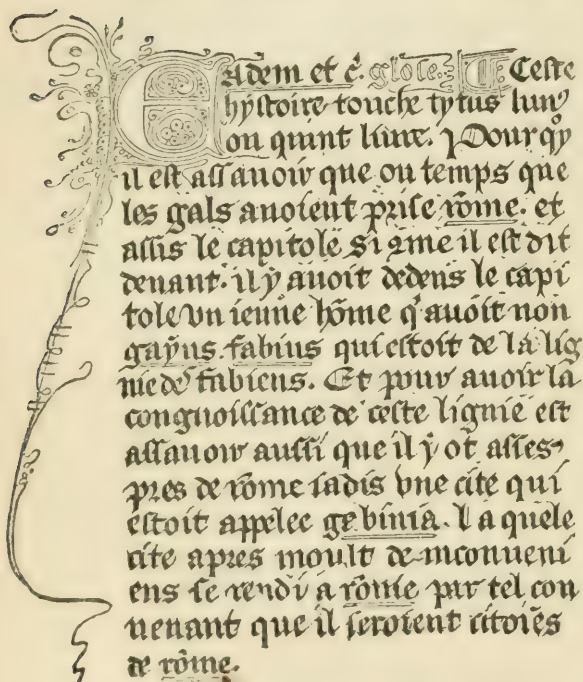 Eadem et c̃. glose. ¶ Ceste
hystoire touche tytus liuiꝰ
ou quint liure. Pour qͥy
il est assauoir que ou temps que
les gals auoient prise rõme. et
assis le capitole si ꝯme il est dit
deuant. il y auoit dedens le capi
tole vn ieune hõme q̾ auoit non
gayus. fabius qui estoit de la lig
nie de fabiens. Et pour auoir la
congnoissance de ceste lignie est
assauoir aussi que il y ot asses
pres de rome iadis vne cite qui
estoit appelee gebinia. la quele
cite apres moult de inconueni
ens se rendi a rõme par tel con
uenant que il seroient citoiẽs
de rõme.